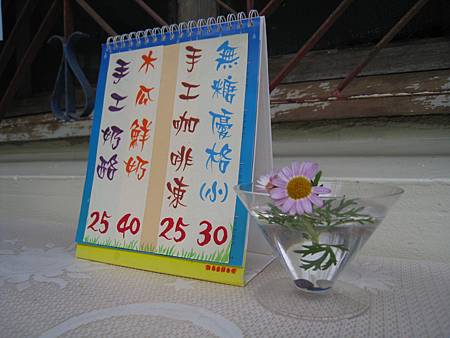 無糖優格(小) 30
手工咖啡凍 25
木瓜鮮奶 40
手工奶酪 25